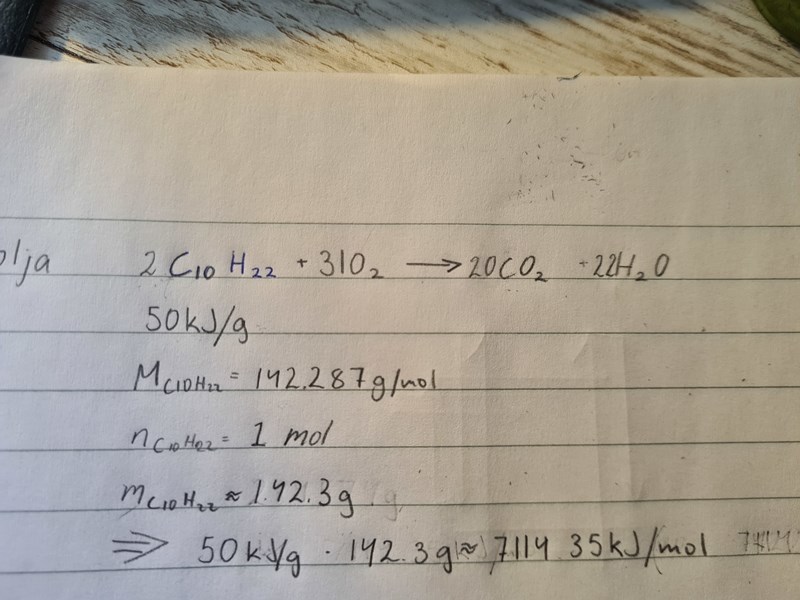 olja 2 C₁₀H₂₂ + 31O₂ → 20CO₂ + 22H₂O
50kJ/g
M_C10H22 = 142.287g/mol
n_C10H22 = 1 mol
m_C10H22 ≈ 142.3g
⇒ 50kJ/g · 142.3g ≈ 7114 35kJ/mol